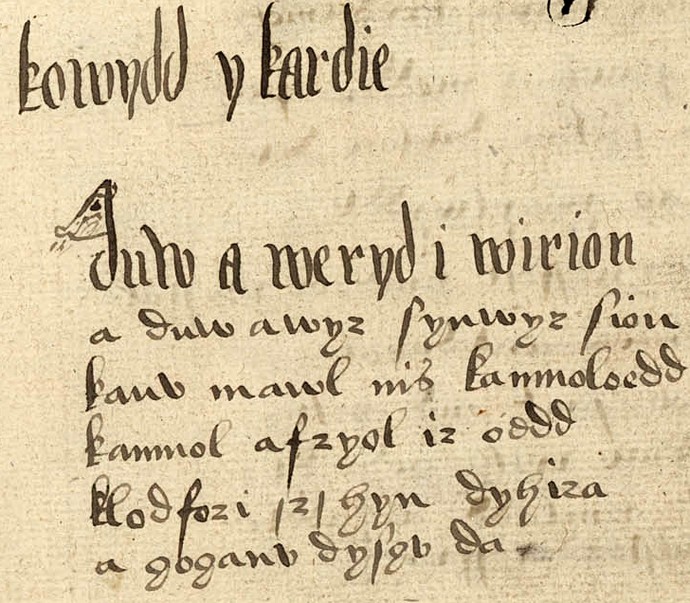 kowydd y kardie
A duw a weryd i wirion
a duw a wyr synwyr sion
kanv mawl nis kanmoloedd
kanmol afryol ir oedd
klodfori /r/ hyn dyhira
a goganv dysgv da